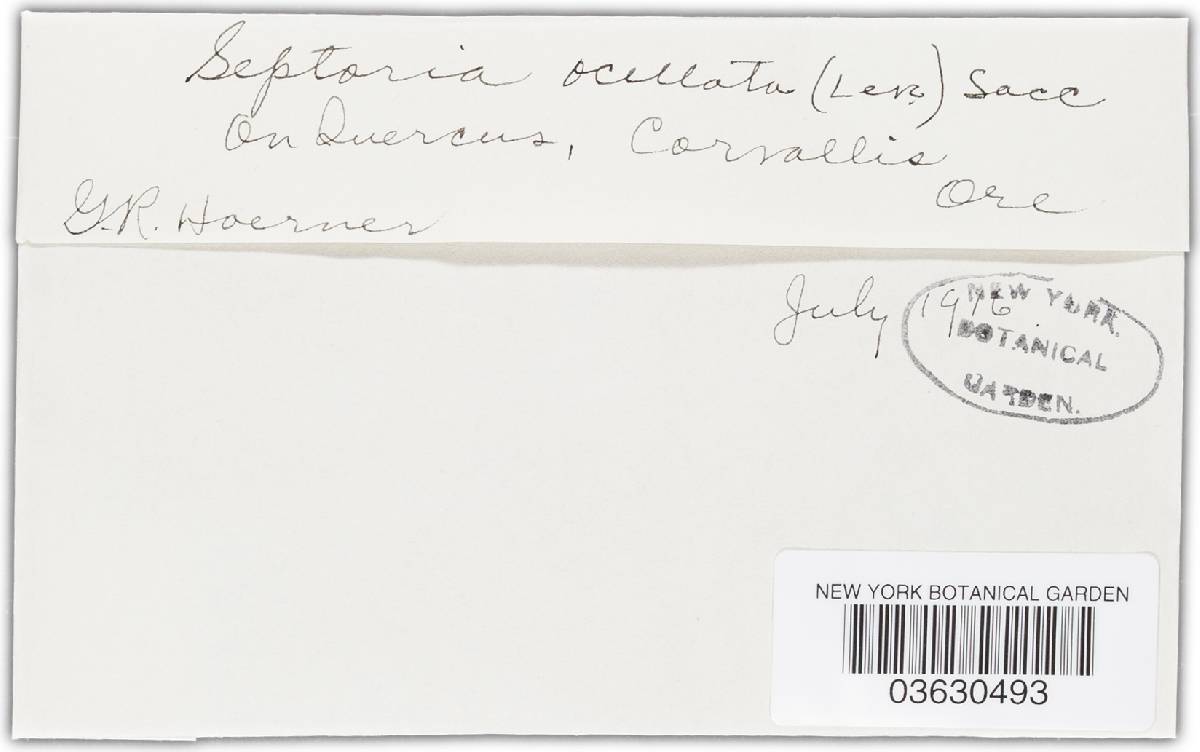 Septoria ocellata (Lev.) Sacc
On Quercus, Corvallis
Ore
G.R. Hoerner
July 1916.
NEW YORK
BOTANICAL
GARDEN.
NEW YORK BOTANICAL GARDEN
03630493